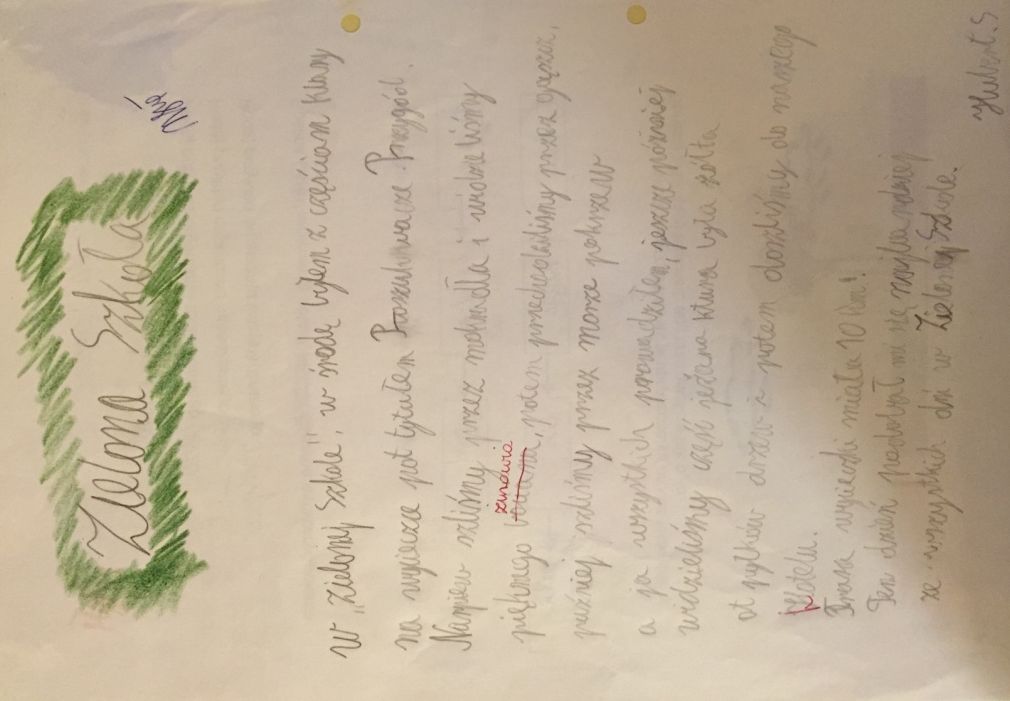 Zielona Szkoła
W „Zielonej Szkole", w środę byłem z częściam klasy
na wycieczce pot tytułem Poszukiwacze Przygód.
Najpierw szliśmy przez mokradła i widzieliśmy
pięknego żurawia, potem przechodziliśmy przez gąszcz,
puźniej szliśmy przez morze pokrzew
a ja wszystkich prowadziłem, jeszcze później
widzieliśmy część jeziora ktura była żółta
ot pyłków drzew i potem doszliśmy do naszego
Hotelu.
Trasa wycieczki miała 10 km!
Ten dzień podobał mi się najbardziej
ze wszystkich dni w Zielonej Szkole.
Hubert. S